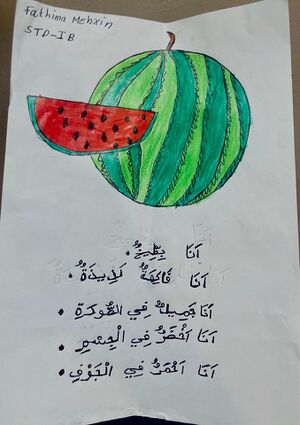 Fathima Mehxin
STD-IB
اَنَا بِطِّيخٌ.
اَنَا فَاكِهَةٌ لَذِيذَةٌ.
اَنَا جَمِيلٌ فِي الصُّورَةِ.
اَنَا اَخْضَرُ فِي الْجِسْمِ.
اَنَا اَحْمَرُ فِي الْجَوْفِ.